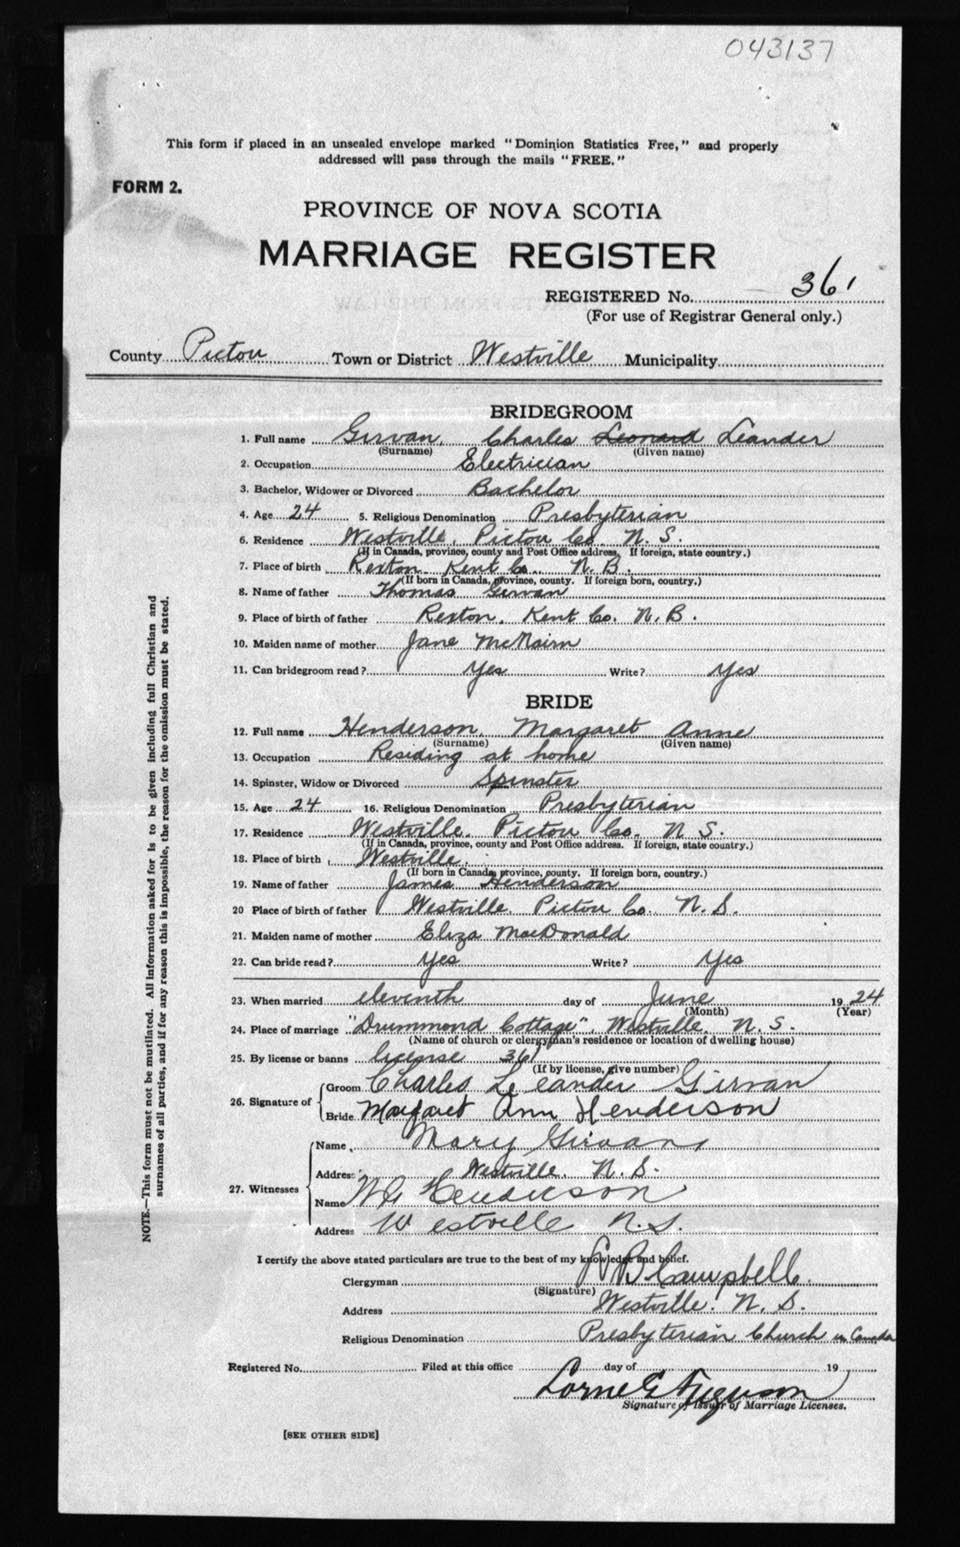 043137
This form if placed in an unsealed envelope marked "Dominion Statistics Free," and properly
addressed will pass through the mails "FREE."
FORM 2.
PROVINCE OF NOVA SCOTIA
MARRIAGE REGISTER
REGISTERED No. 361
(For use of Registrar General only.)
County Pictou Town or District Westville Municipality
BRIDEGROOM
1. Full name Girvan, Charles Leonard Leander
(Surname) (Given name)
2. Occupation Electrician
3. Bachelor, Widower or Divorced Bachelor
4. Age 24 5. Religious Denomination Presbyterian
6. Residence Westville, Pictou Co. N. S.
(If in Canada, province, county and Post Office address. If foreign, state country.)
7. Place of birth Rexton Kent Co. N. B.
(If born in Canada, province, county. If foreign born, country.)
8. Name of father Thomas Girvan
9. Place of birth of father Rexton, Kent Co. N. B.
10. Maiden name of mother Jane McNairn
11. Can bridegroom read? Yes Write? Yes
BRIDE
12. Full name Henderson, Margaret Anne
(Surname) (Given name)
13. Occupation Residing at home
14. Spinster, Widow or Divorced Spinster
15. Age 24 16. Religious Denomination Presbyterian
17. Residence Westville, Pictou Co. N S.
(If in Canada, province, county and Post Office address. If foreign, state country.)
18. Place of birth Westville,
(If born in Canada, province, county. If foreign born, country.)
19. Name of father James Henderson
20 Place of birth of father Westville, Pictou Co. N. S.
21. Maiden name of mother Eliza MacDonald
22. Can bride read? Yes Write? Yes
23. When married eleventh day of June 1924
(Month) (Year)
24. Place of marriage "Drummond Cottage", Westville, N. S.
(Name of church or clergyman's residence or location of dwelling house)
25. By license or banns license 361
(If by license, give number)
26. Signature of Groom Charles Leander Girvan
Bride Margaret Ann Henderson
27. Witnesses Name Mary Girvan,
Address Westville, N. S.
Name Henderson
Address Westville N.S.
I certify the above stated particulars are true to the best of my knowledge and belief.
Clergyman Campbell
(Signature)
Address Westville. N. S.
Religious Denomination Presbyterian Church in Canada
Registered No. Filed at this office day of 19
Lorne G Ferguson
Signature of Issuer of Marriage Licenses.
[SEE OTHER SIDE]
NOTE.—This form must not be mutilated. All information asked for is to be given including full Christian and
surnames of all parties, and if for any reason this is impossible, the reason for the omission must be stated.